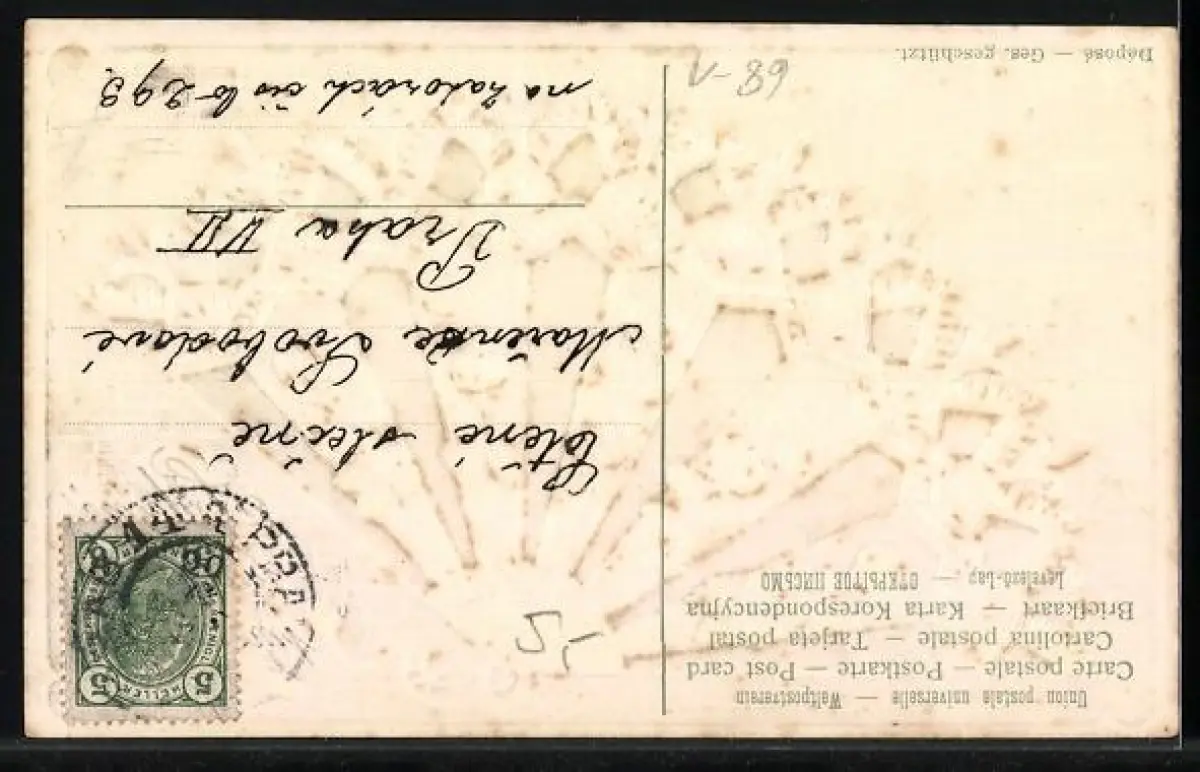 Union postale universelle — Weltpostverein
Carte postale — Postkarte — Post card
Cartolina postale — Tarjeta postal
Briefkaart — Karta Korespondencyjna
Levelező-Lap — ОТКРЫТОЕ ПИСЬМО
5 HELLER 5
Ctěné slečně
Mařence Svobodové
Praha VII
na Zátorách číslo 293
Déposé — Ges. geschützt.
V-89
5-